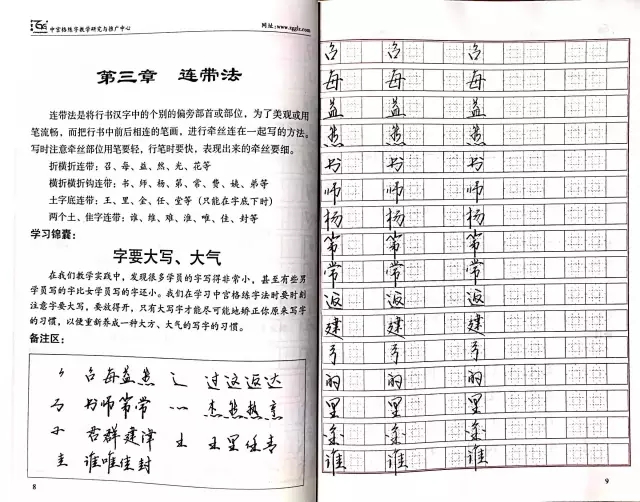 中宫格练字教学研究与推广中心
网址:www.zgglz.com
第三章 连带法
连带法是将行书汉字中的个别的偏旁部首或部位，为了美观或用
笔流畅，而把行书中前后相连的笔画，进行牵丝连在一起写的方法。
写时注意牵丝部位用笔要轻，行笔时要快，表现出来的牵丝要细。
折横折连带：召、每、益、然、光、花等
横折横折钩连带：书、师、杨、第、常、费、姚、弟等
土字底连带：王、里、金、任、堂等（只能在字底下时）
两个土、隹字连带：谁、维、难、淮、唯、佳、封等
学习锦囊：
字要大写、大气
在我们教学实践中，发现很多学员的字写得非常小，甚至有些男
学员写的字比女学员写的字还小。我们在学习中宫格练字法时要时刻
注意字要大写，要放得开，只有大写字才能尽可能地矫正你原来写字
的习惯，以便重新养成一种大方、大气的写字的习惯。
备注区：
召每益然 辶 过这返达
书师第常 灬 杰然热烹
君群建泽 土 王里任青
圭 谁唯佳封
8
召 召 召
每 每 每
益 益 益
然 然 然
书 书 书
师 师 师
杨 杨 杨
第 第 第
常 常 常
返 返 返
建 建 建
的 的 的
里 里 里
金 金 金
谁 谁 谁
9